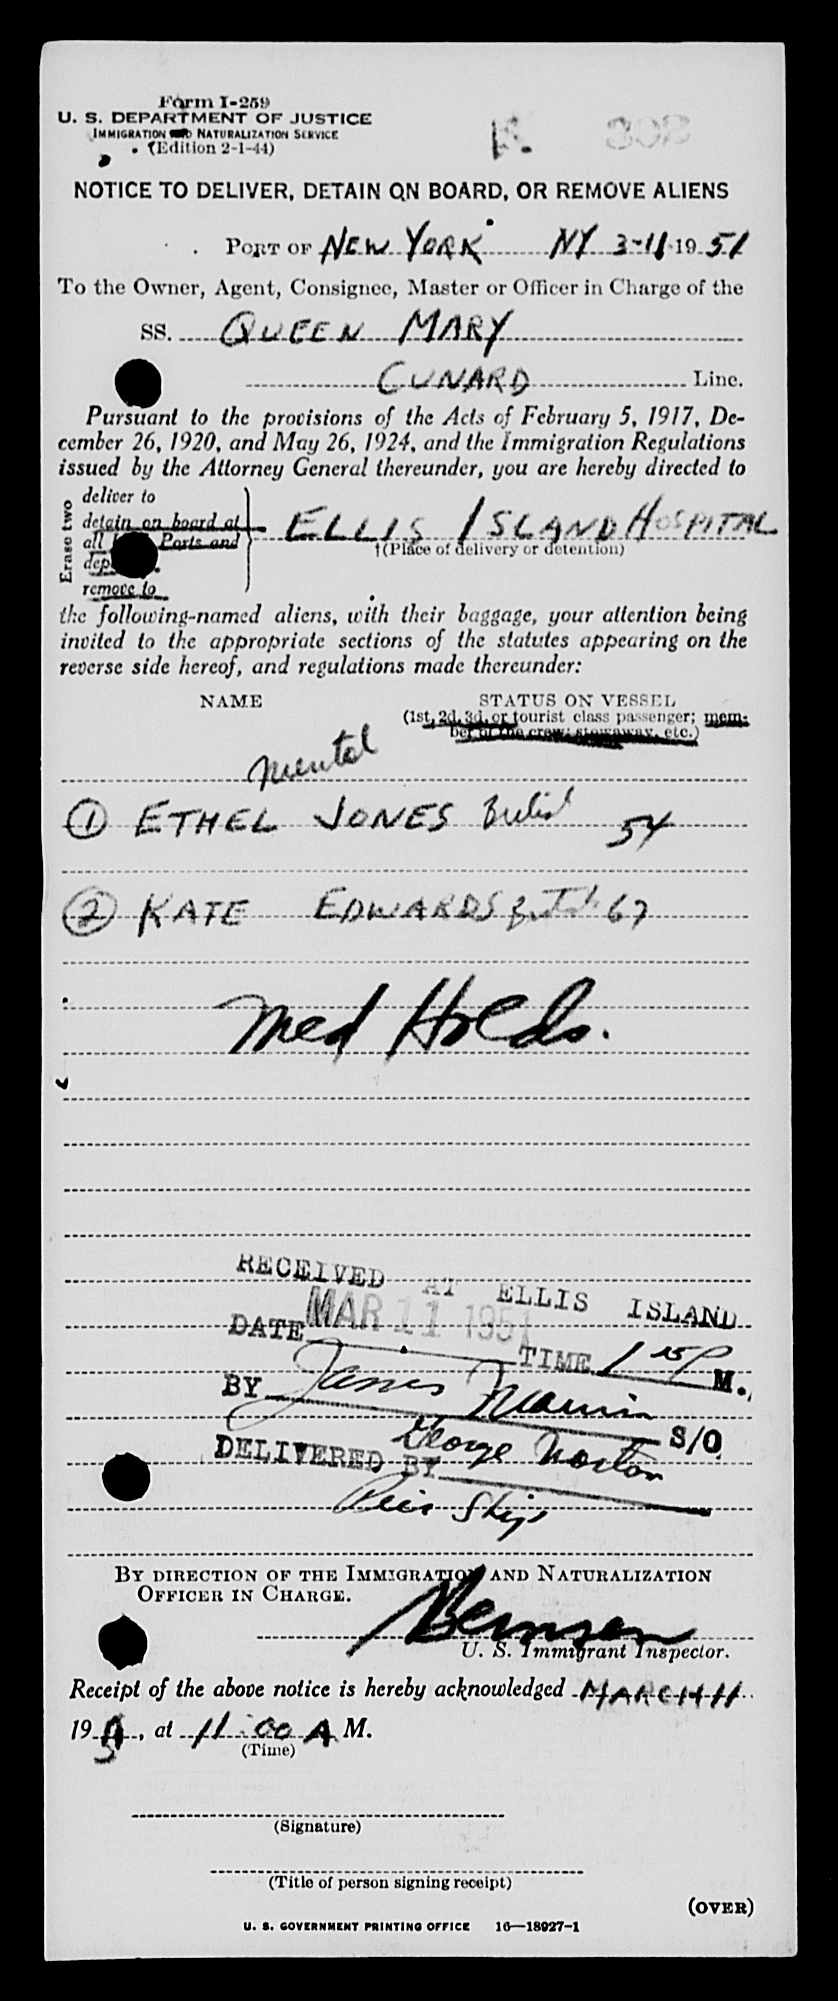 Form I-259
U. S. DEPARTMENT OF JUSTICE
IMMIGRATION AND NATURALIZATION SERVICE
(Edition 2-1-44)
NOTICE TO DELIVER, DETAIN ON BOARD, OR REMOVE ALIENS
PORT OF NEW YORK NY 3-11 1951
To the Owner, Agent, Consignee, Master or Officer in Charge of the
SS. QUEEN MARY
CUNARD Line.
Pursuant to the provisions of the Acts of February 5, 1917, De-
cember 26, 1920, and May 26, 1924, and the Immigration Regulations
issued by the Attorney General thereunder, you are hereby directed to
Erase two
deliver to
detain on board at
all Ports and
remove to
ELLIS ISLAND HOSPITAL
†(Place of delivery or detention)
the following-named aliens, with their baggage, your attention being
invited to the appropriate sections of the statutes appearing on the
reverse side hereof, and regulations made thereunder:
NAME STATUS ON VESSEL
(1st, 2d, 3d, or tourist class passenger; mem-
ber of the crew; stowaway, etc.)
Mental
① ETHEL JONES 54
② KATE EDWARDS 67
Med Holds.
RECEIVED AT ELLIS ISLAND
DATE MAR 11 1951 TIME 1 15 P M.
BY James S/O
DELIVERED BY George Norton
By direction of the Immigration and Naturalization
Officer in Charge.
U. S. Immigrant Inspector.
Receipt of the above notice is hereby acknowledged MARCH 11
1951, at 11:00 A M.
(Time)
(Signature)
(Title of person signing receipt)
(OVER)
U. S. GOVERNMENT PRINTING OFFICE 16—18927-1